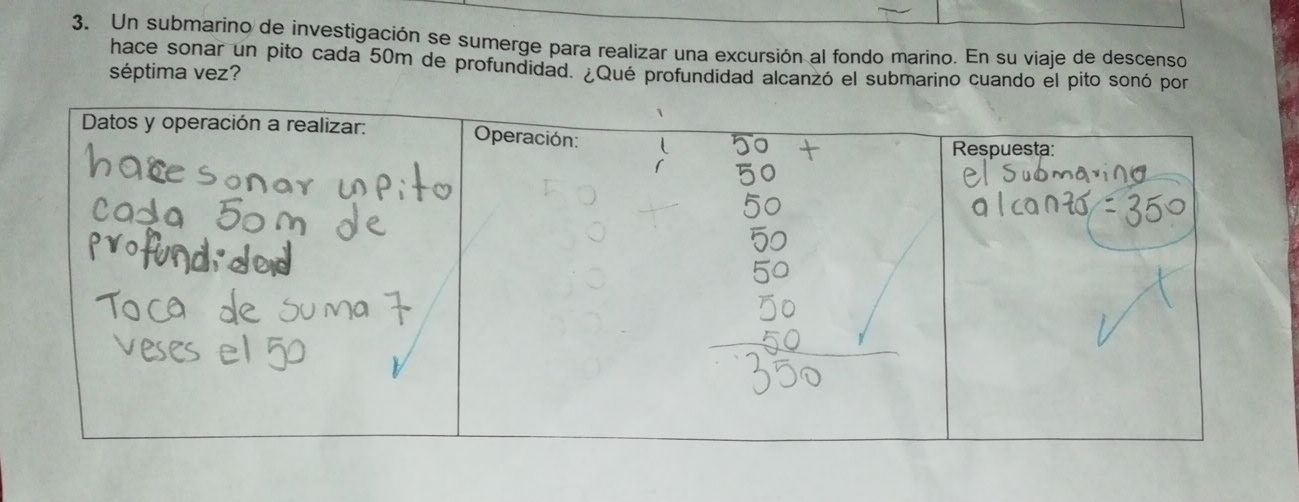 3. Un submarino de investigación se sumerge para realizar una excursión al fondo marino. En su viaje de descenso
hace sonar un pito cada 50m de profundidad. ¿Qué profundidad alcanzó el submarino cuando el pito sonó por
séptima vez?
Datos y operación a realizar:
hace sonar un pito
cada 50m de
profundidad
Toca de suma 7
veses el 50
Operación:
50 +
50
50
50
50
50
50
350
Respuesta:
el submarino
alcanzó = 350